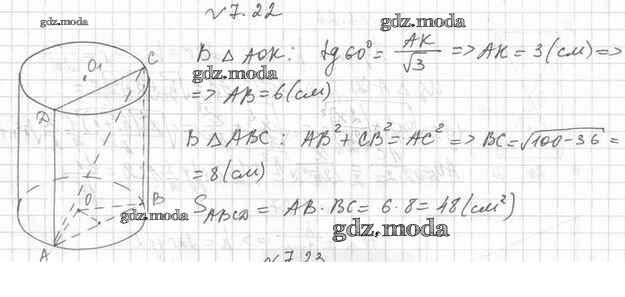 √7.22
gdz.moda
gdz.moda
В △ AOK: tg 60° = AK/√3 => AK = 3 (см) =>
gdz.moda
=> AB = 6 (см)
В △ ABC: AB² + CB² = AC² => BC = √100-36 =
= 8 (см)
S ABCD = AB · BC = 6 · 8 = 48 (см²)
gdz.moda
gdz.moda
O₁
C
D
O
B
A
√7.23